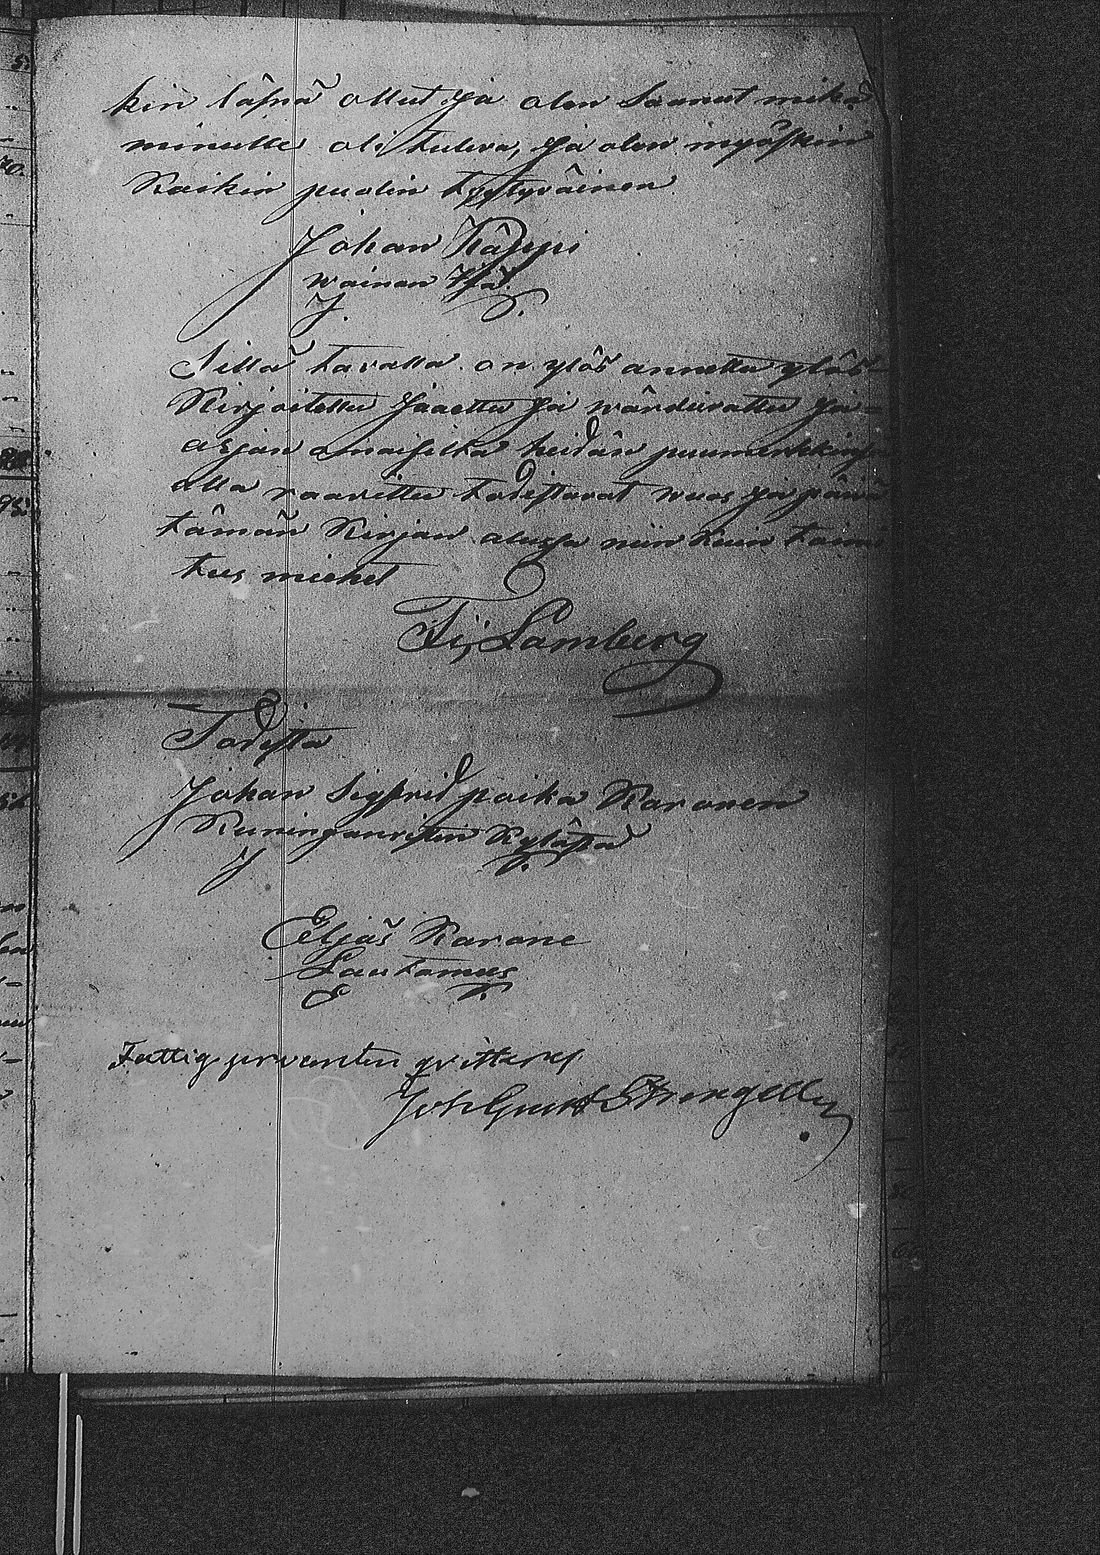 kin läsnä ollut ja olen Saanut mikä
minulle oli tuleva, ja olen myöskin
Kaikin puolin tyytyväinen
Johan Käppi
wainan
J.
Sillä tavalla on ylös annettu ylös-
Kirjoitettu Jaettu ja wärderattu ja
asjan omaisilta heidän puumerkkinsä
alla raavittu todistavat wuos ja päivä
tämän Kirjan alussa niin kuin toimi
tus miehet
Lamberg
Todista
Johan Sigfrid poika Karonen
Kuninganristin Kylästä
J K.
Eljas Karone
Lautamies
E K.
Fattig procenten qvitteras
Joh Gust Strengell